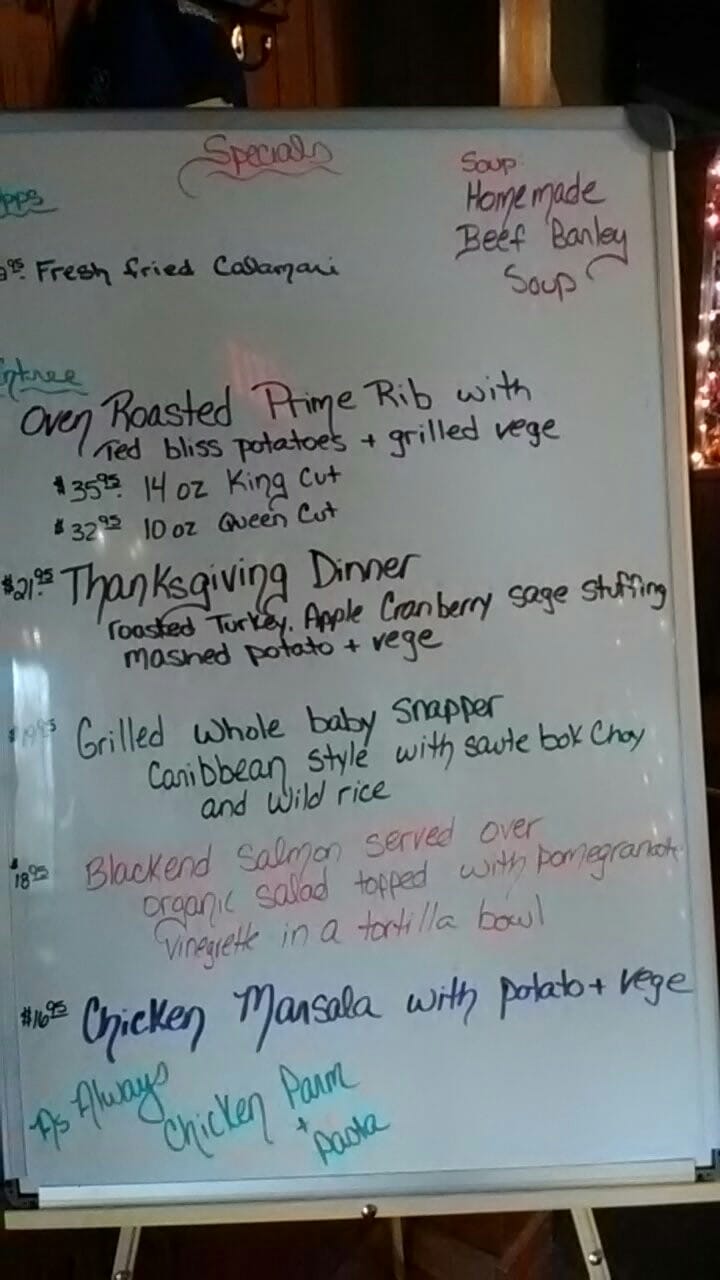 Specials
Soup:
Homemade
Beef Barley
Soup
Apps
Fresh fried Calamari
Entree
Oven Roasted Prime Rib with
red bliss potatoes + grilled vege
$35.95 14 oz King Cut
$32.95 10 oz Queen Cut
$21.95 Thanksgiving Dinner
roasted Turkey. Apple Cranberry sage stuffing
mashed potato + vege
$19.95 Grilled whole baby snapper
Caribbean style with saute bok choy
and wild rice
$18.95 Blackend Salmon served over
organic salad topped with pomegranate
vinegrette in a tortilla bowl
$16.95 Chicken Marsala with potato + vege
As Always
Chicken Parm
+ pasta